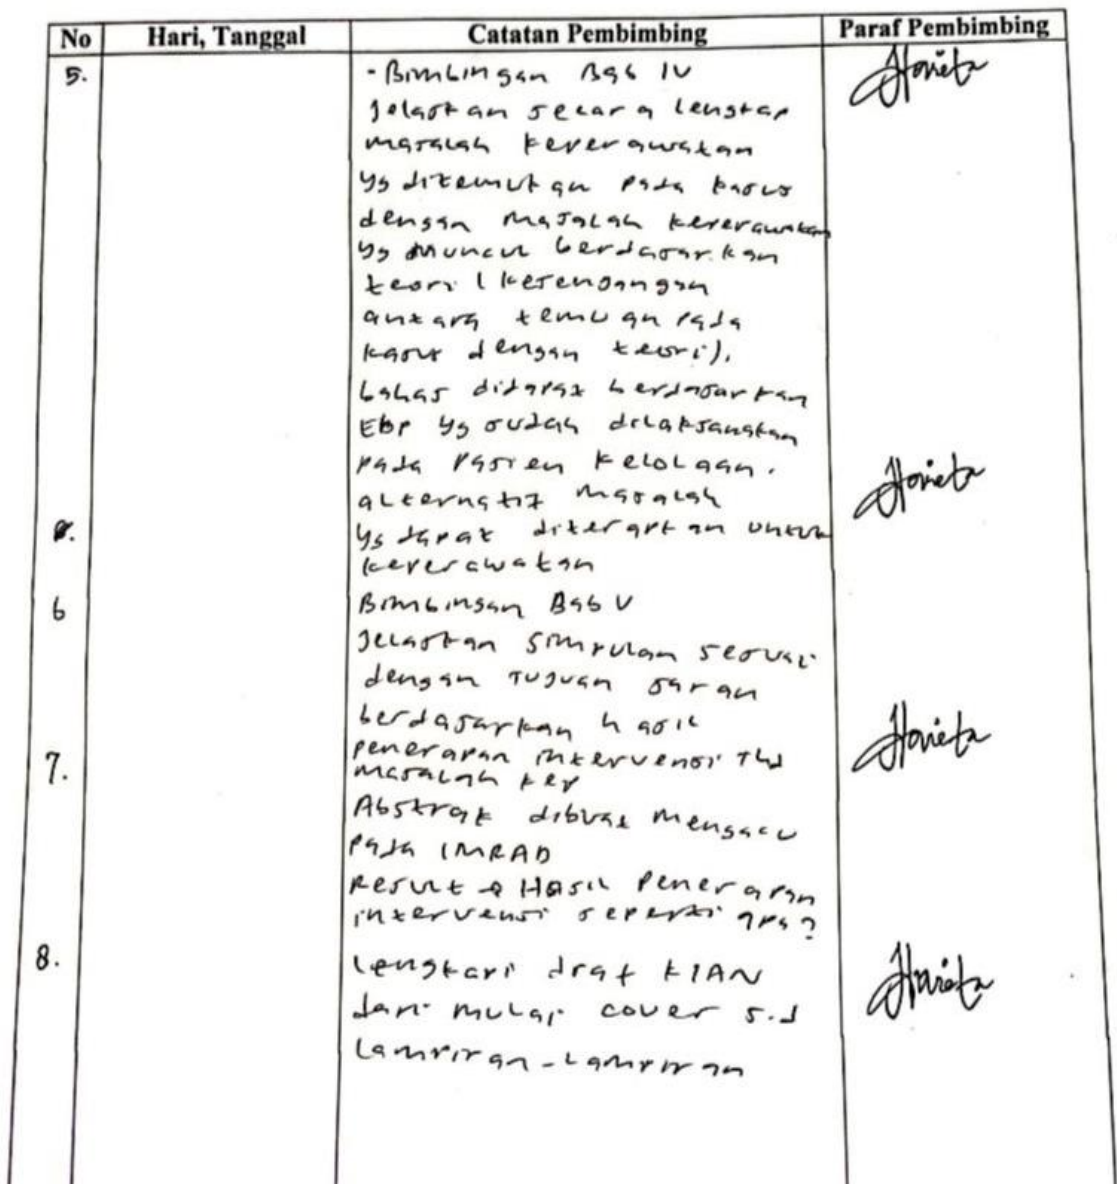 No Hari, Tanggal Catatan Pembimbing Paraf Pembimbing
5. - Bimbingan Bab IV
Jelaskan secara lengkap
masalah keperawatan
yg ditemukan pada kasus
dengan masalah keperawatan
yg muncul berdasarkan
teori (kesenjangan
antara temuan pada
kasus dengan teori).
bahas didapat berdasarkan
EBP yg sudah dilaksanakan
pada pasien kelolaan.
alternatif masalah
yg dapat diterapkan untuk
keperawatan
6 Bimbingan Bab V
Jelaskan simpulan sesuai
dengan tujuan saran
berdasarkan hasil
7. penerapan intervensi thd
masalah kep
Abstrak dibuat mengacu
pada IMRAD
Result → Hasil penerapan
intervensi seperti apa?
8. Lengkapi draf KIAN
dari mulai cover s.d
Lampiran-Lampiran